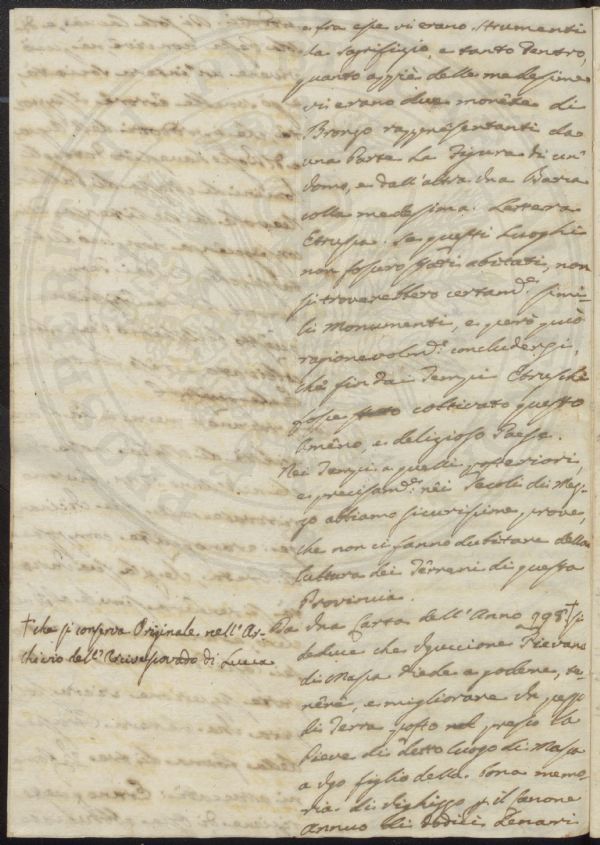 e fra esse vi erano Strumenti
da Sagrifizio, e tanto dentro,
quanto appiè delle medesime
vi erano due monête di
Bronzo rappresentanti da
una Parte la Figura di un'
Uomo, e dall'altra Una Barca
colla medesima Lettera
Etrusca. Se questi Luoghi
non fossero stati abitati, non
si troverebbero certam.e simi-
li Monumenti, e però può
ragionevolm.e concludersi,
che fin dai Tempi Etruschi
fosse coltivato questo
Amêno, e delizioso Paese.
Nei Tempi a quelli posteriori,
e precisam.e nei Secoli di Mez-
zo abbiamo sicurissime prove,
che non ci fanno dubitare della
Cultura dei Terreni di questa
Provincia.
Da Una Carta dell'Anno 998 † si
deduce che Uguccione Pievano
di Massa diede a godere, te-
nêre, e migliorare Un pezzo
di Terra posto nel presso la
Pieve di detto luogo di Massa
a Ugo figlio della bona memo-
ria di Sighizzo p. il Canone
Annuo di dodici Denari
† che si conserva Originale nell'Ar-
chivio dell'Arcivescovado di Lucca